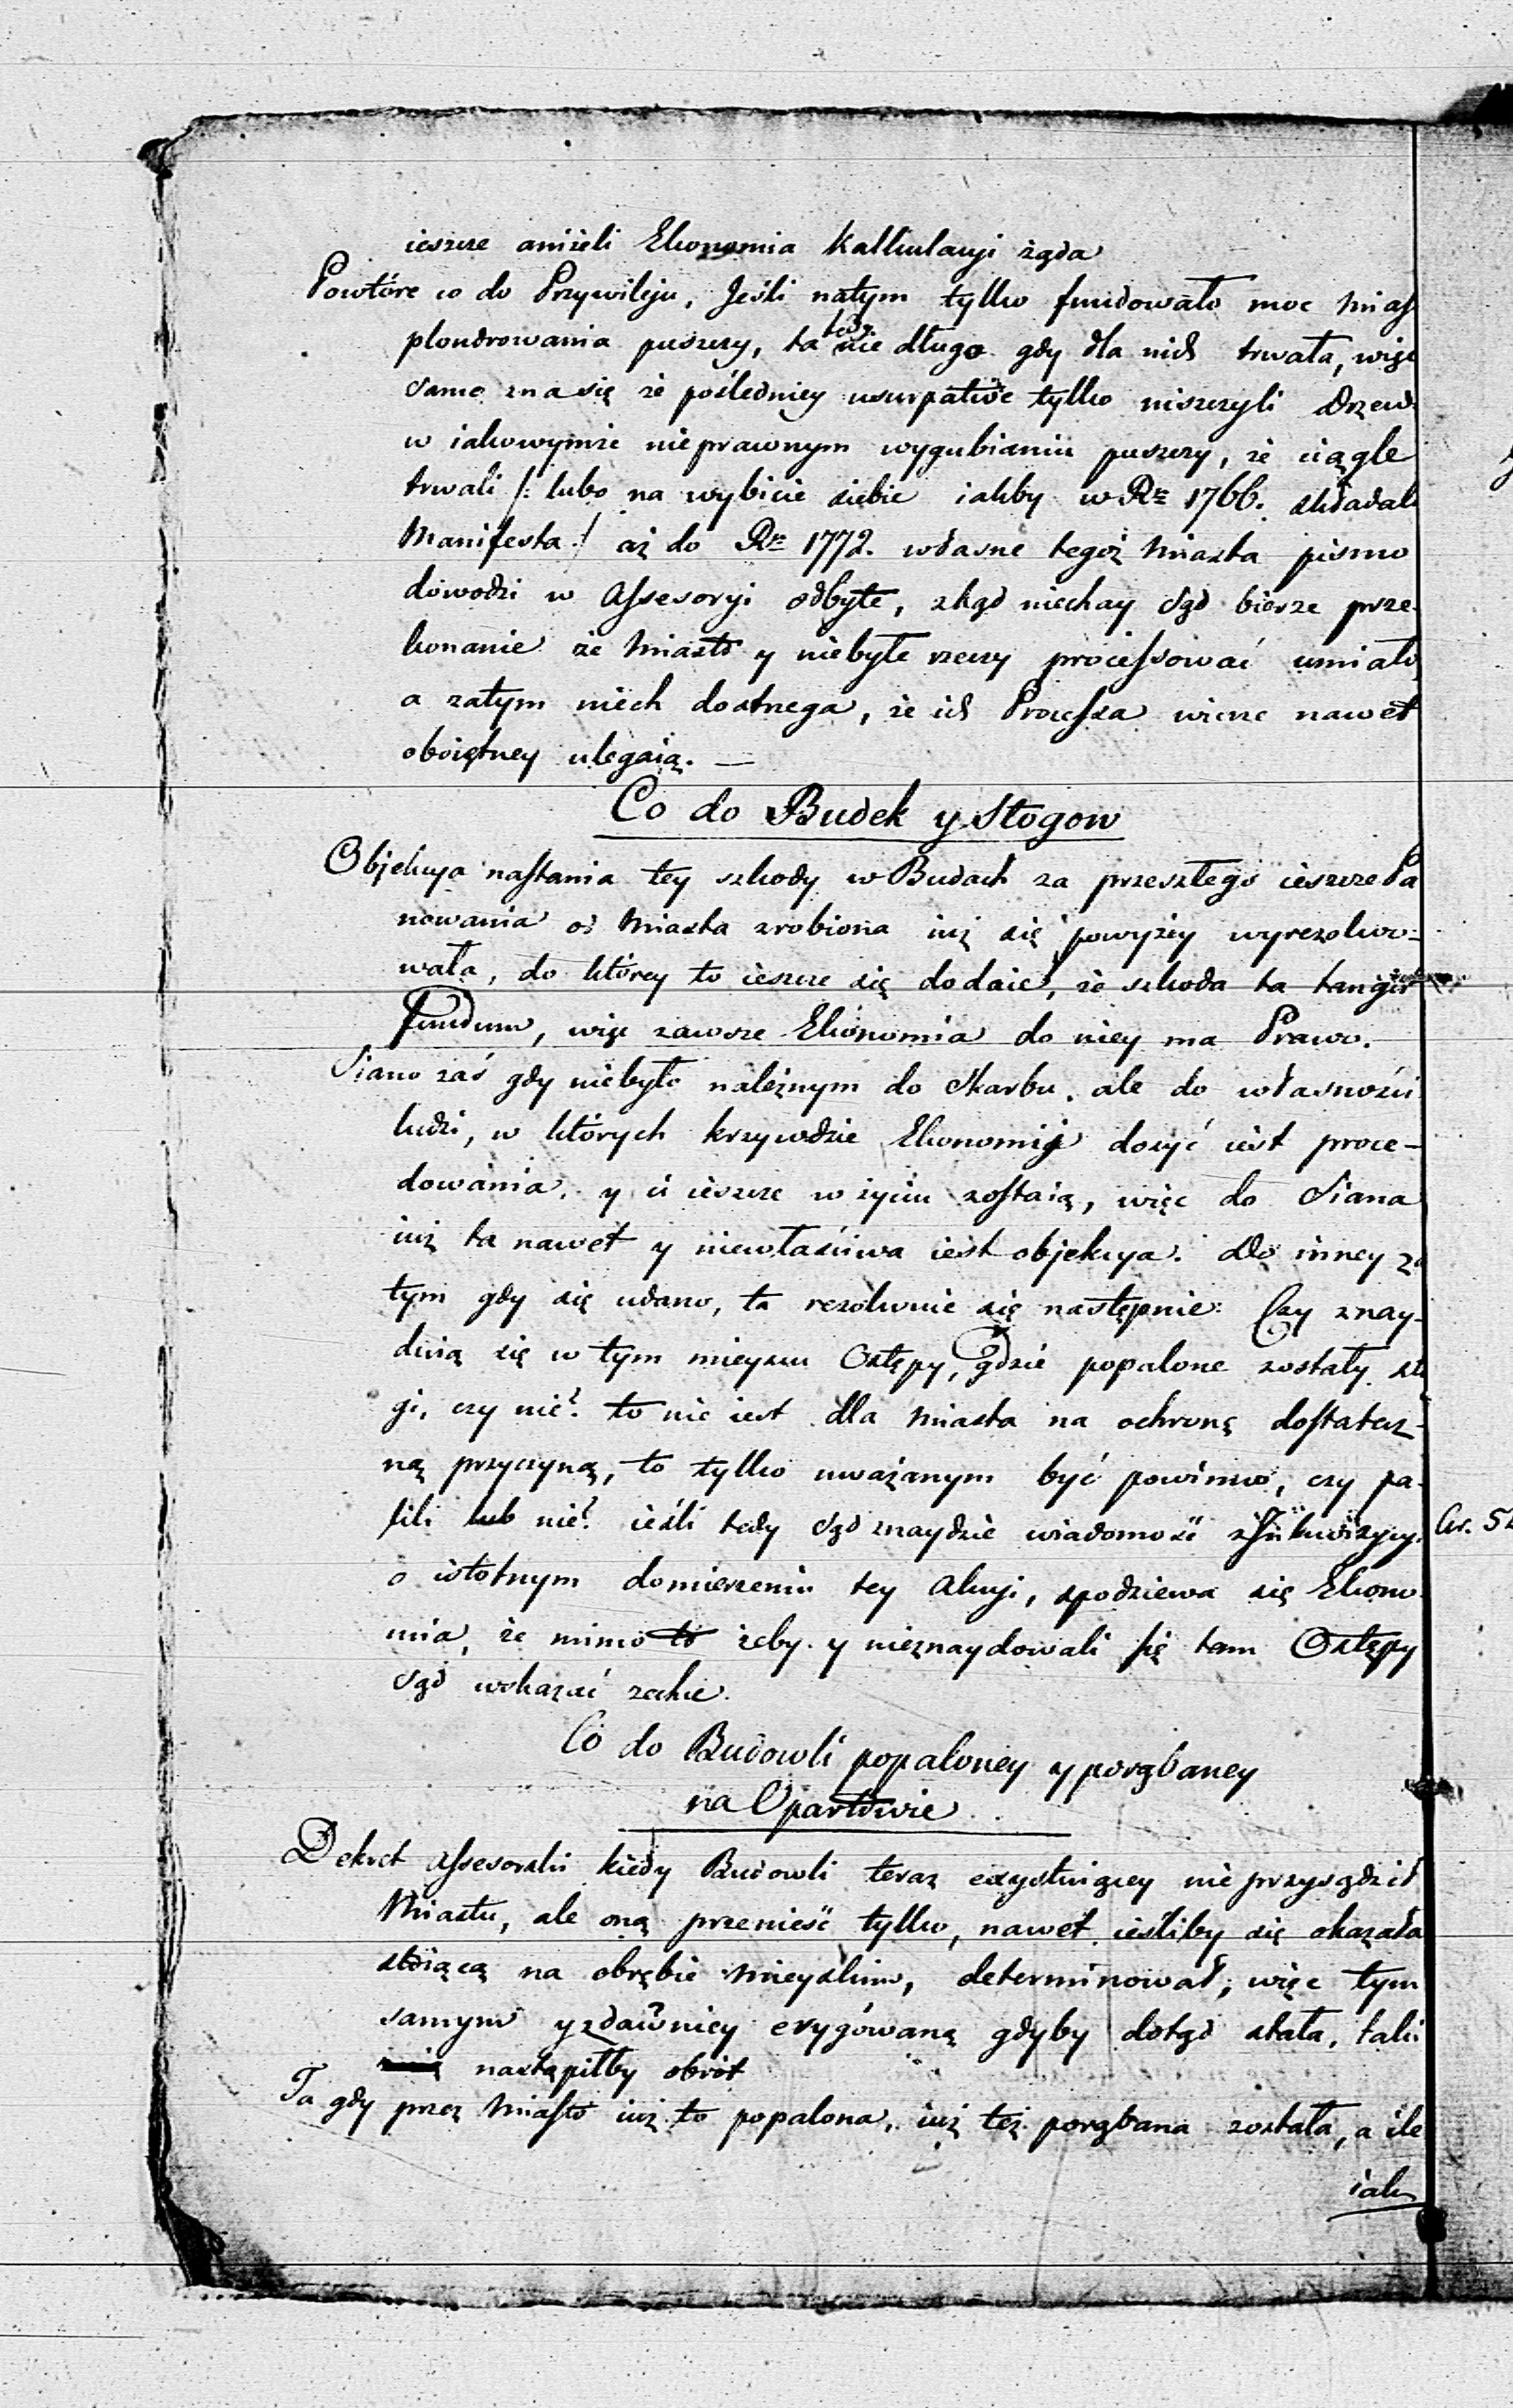 ieszcze aniżeli Ekonomia Kalkulacyi żąda
Powtóre co do Przywileju, Jeśli natym tylko fundowało moc Mias
plondrowania puszczy, ta też nie długo gdy dla nich trwała, więc
samo zna się że poślednicy usurpative tylko niszczyli Drzew
w iakowymże nieprawnym wygubianiu puszczy, że ciągle
trwali /: lubo na wybicie siebie iakby w Rze 1766. składali
Manifesta :/ aż do Rz 1772. własne tegoż Miasta pismo
dowodzi w Assesoryi odbyte, zkąd niechay Sąd bierze prze-
konanie że Miasto y niebyłe rzeczy processować umiało
a zatym niech dostrzega, że ich Processa wierze nawet
oboiętney ulegaią. —
Co do Budek y Stogow
Objekcya nastania tey szkody w Budach za przeszłego ieszcze Pa
nowania od Miasta zrobiona iuż się powyżey wyrezolwo-
wała, do którey to ieszcze się dodaie, że szkoda ta tangit
Fundum, więc zawsze Ekonomia do niey ma Prawo.
Siano zaś gdy niebyło należnym do Skarbu, ale do własności
ludzi, w których krzywdzie Ekonomij dosyć iest proce-
dowania, y ci ieszcze w życiu zostaią, więc do Siana
iuż ta nawet y niewłaściwa iest objekcya. Do inney za
tym gdy się udano, ta rezolwuie się następnie: Czy znay-
duią się w tym mieyscu Ostępy, gdzie popalone zostały sto
gi, czy nie? to nie iest dla Miasta na ochronę dostatecz-
ną przyczyną, to tylko uważanym być powinno, czy pa-
lili lub nie? ieśli tedy Sąd znaydzie wiadomość z Inkwizycyi
o istotnym domierzeniu tey Akcyi, spodziewa się Ekono
mia, że mimo to żeby y nieznaydowali się tam Ostępy
Sąd wskazać zechce.
Co do Budowli popaloney y porąbaney
na Opartowie
Dekret Assesorski kiedy Budowli teraz exystuiącey nie przysądził
Miastu, ale oną przenieść tylko, nawet ieśliby się okazała
stoiącą na obrębie Mieyskim, determinował, więc tym
samym y zdawniey erygowaną gdyby dotąd stała, taki
nastąpiłby obrót
Ta gdy przez Miasto iuż to popalona, iuż też porąbana została, a ile
iako